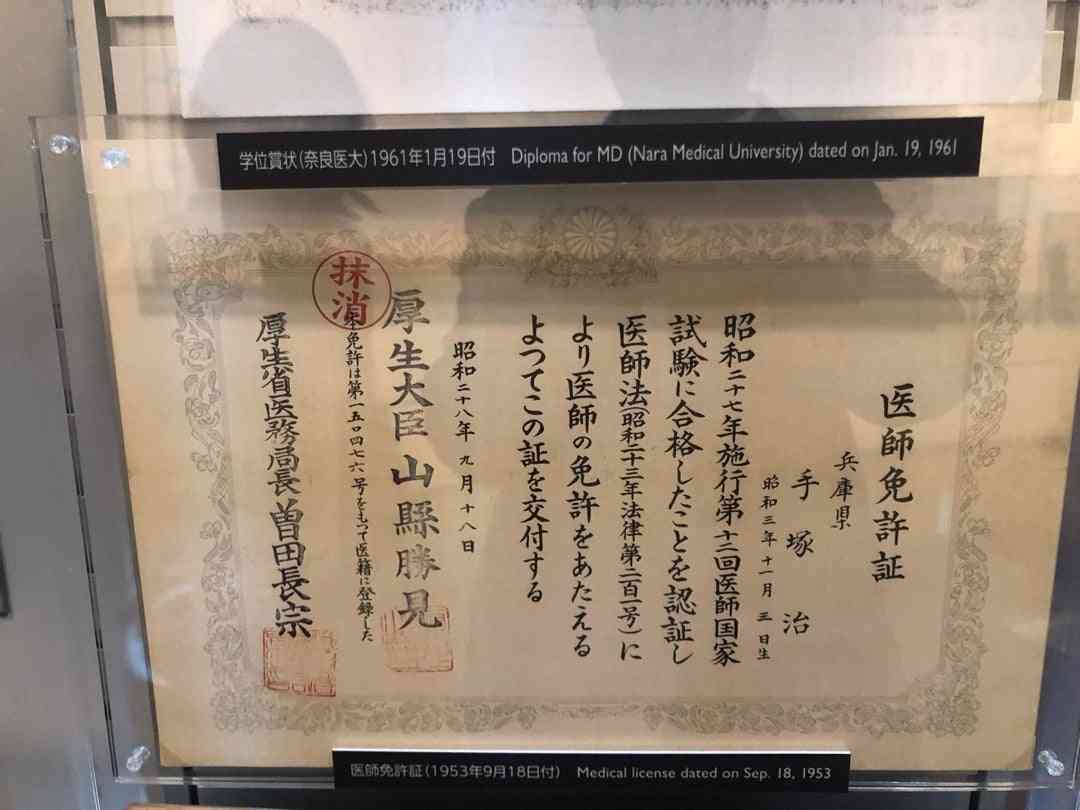 学位賞状(奈良医大)1961年1月19日付 Diploma for MD (Nara Medical University) dated on Jan. 19, 1961
医師免許証
兵庫県
手塚治
昭和三年十一月三日生
昭和二十七年施行第十二回医師国家
試験に合格したことを認証し
医師法(昭和二十三年法律第二百一号)に
より医師の免許をあたえる
よつてこの証を交付する
昭和二十八年九月十八日
厚生大臣山縣勝見
抹消
本免許は第一五〇四七六号をもつて医籍に登録した
厚生省医務局長曽田長宗
医師免許証(1953年9月18日付) Medical license dated on Sep. 18, 1953